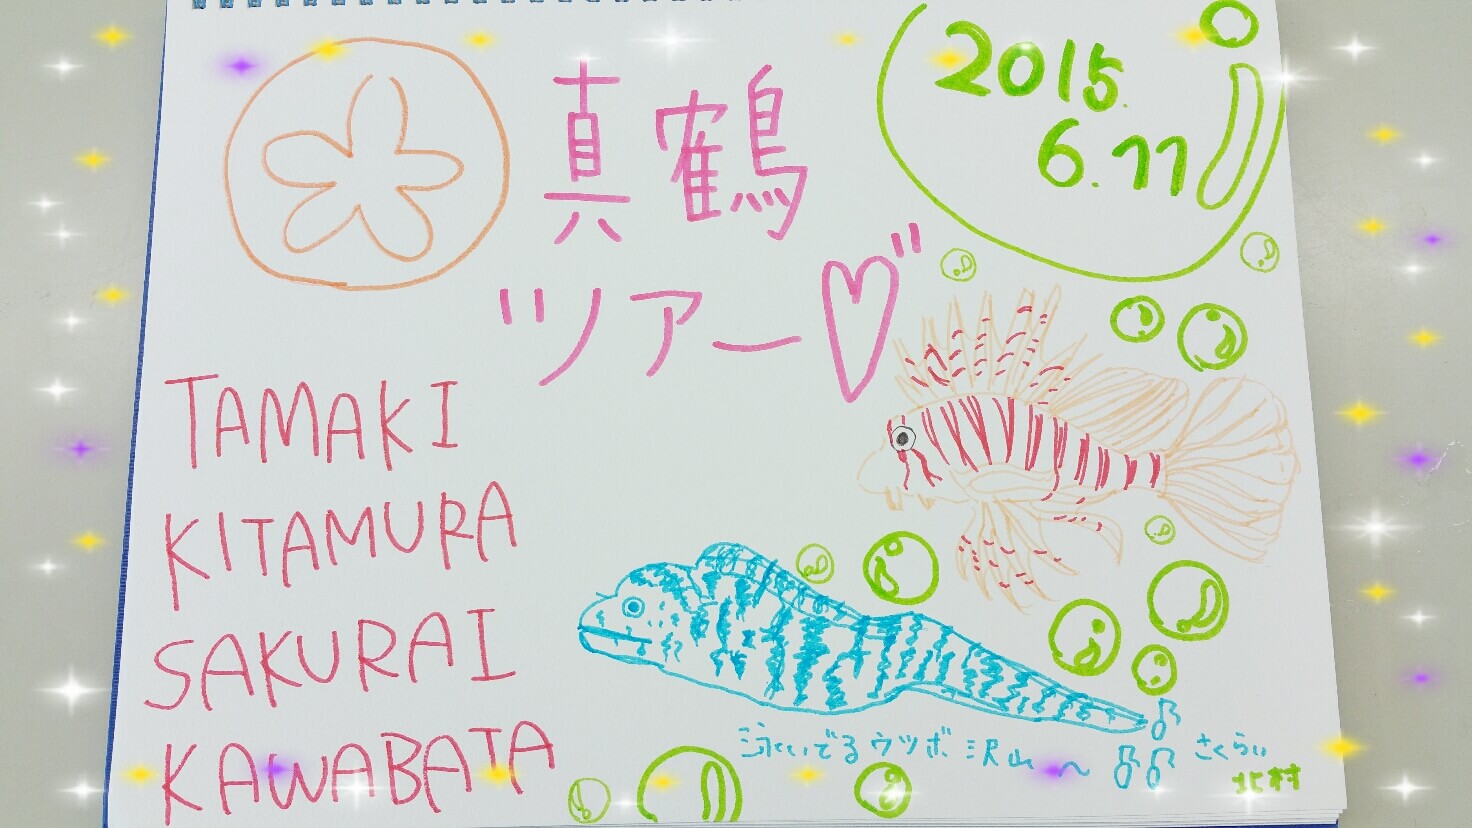 2015.
6.11
真鶴
ツアー♡"
TAMAKI
KITAMURA
SAKURAI
KAWABATA
泳いでるウツボ沢山〜♪♪♪
さくらい
北村